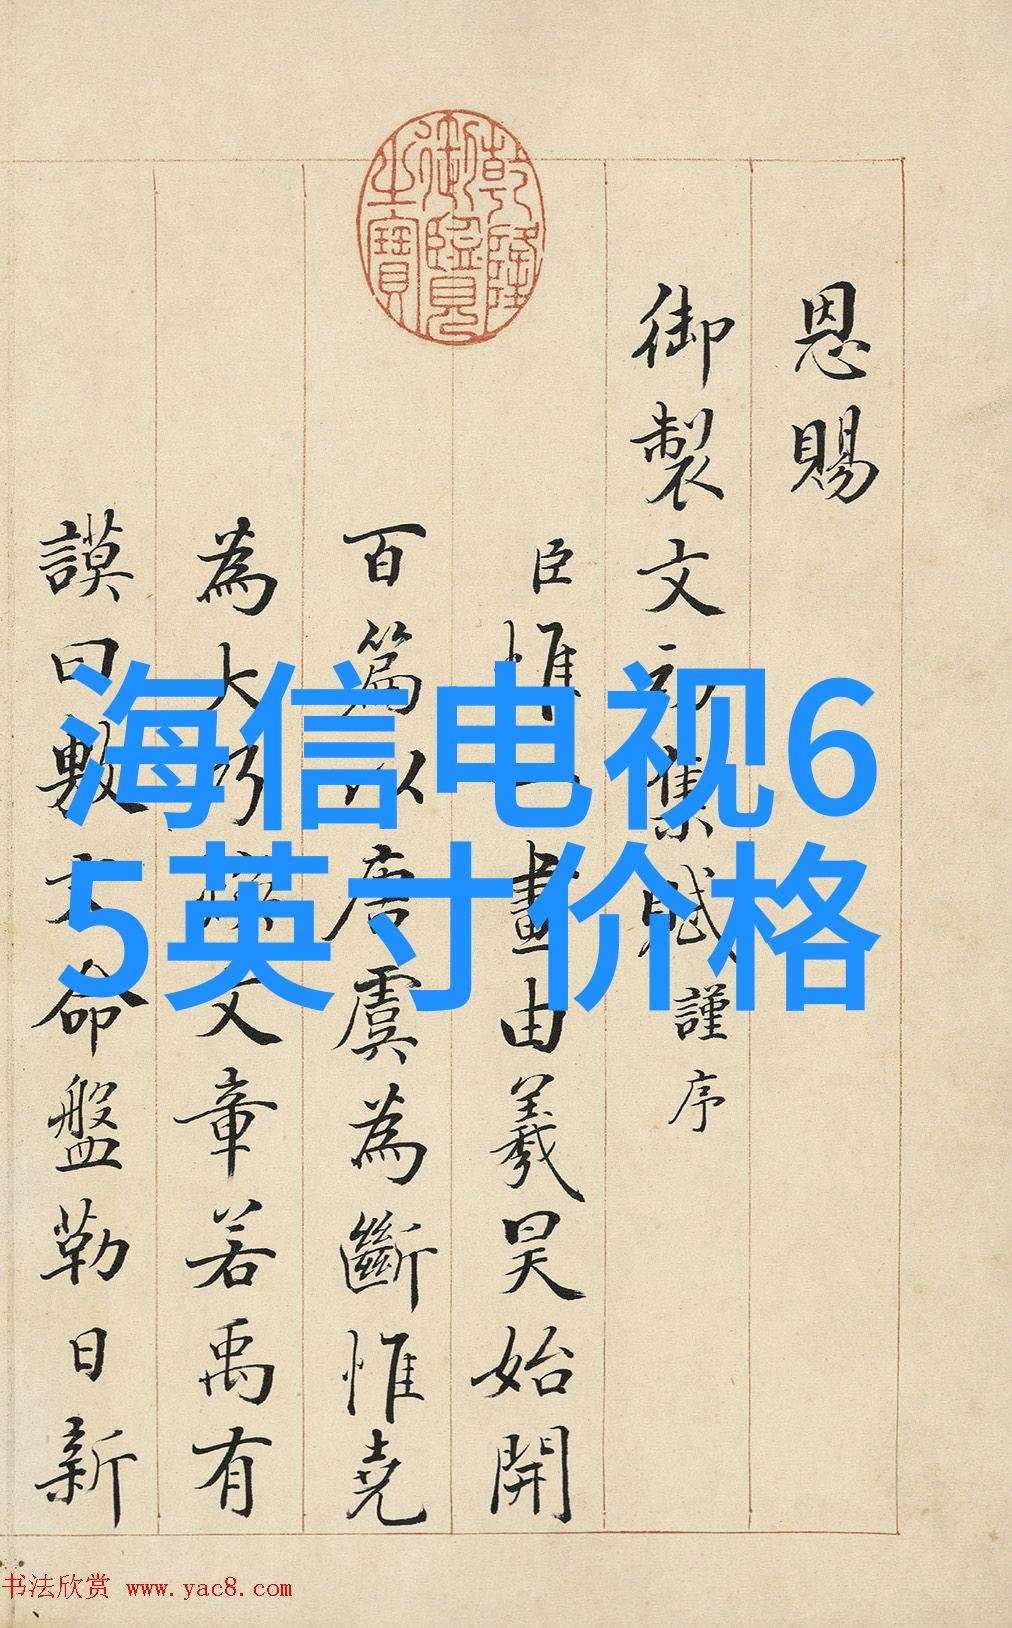 乾隆
御覽
之寶
恩賜
御製文初集賦謹序
臣惟一畫由羲昊始開
百篇以唐虞為斷惟堯
為大乃煥文章若禹有
謨曰敷文命盤勒日新
海信电视6
5英寸价格
书法欣赏 www.yac8.com